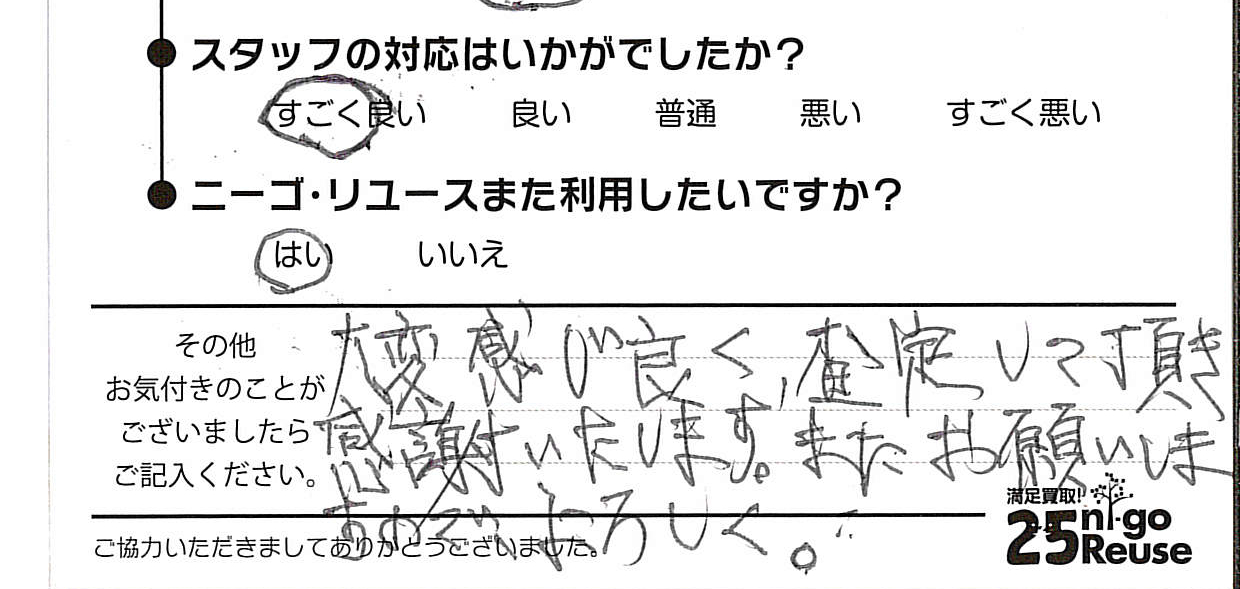 スタッフの対応はいかがでしたか?
すごく良い 良い 普通 悪い すごく悪い
ニーゴ・リユースまた利用したいですか?
はい いいえ
その他
お気付きのことが
ございましたら
ご記入ください。
大変感じ良く,査定して頂き
感謝いたします。またお願いしま
すのでよろしく。
満足買取!
25 ni-go
Reuse
ご協力いただきましてありがとうございました。